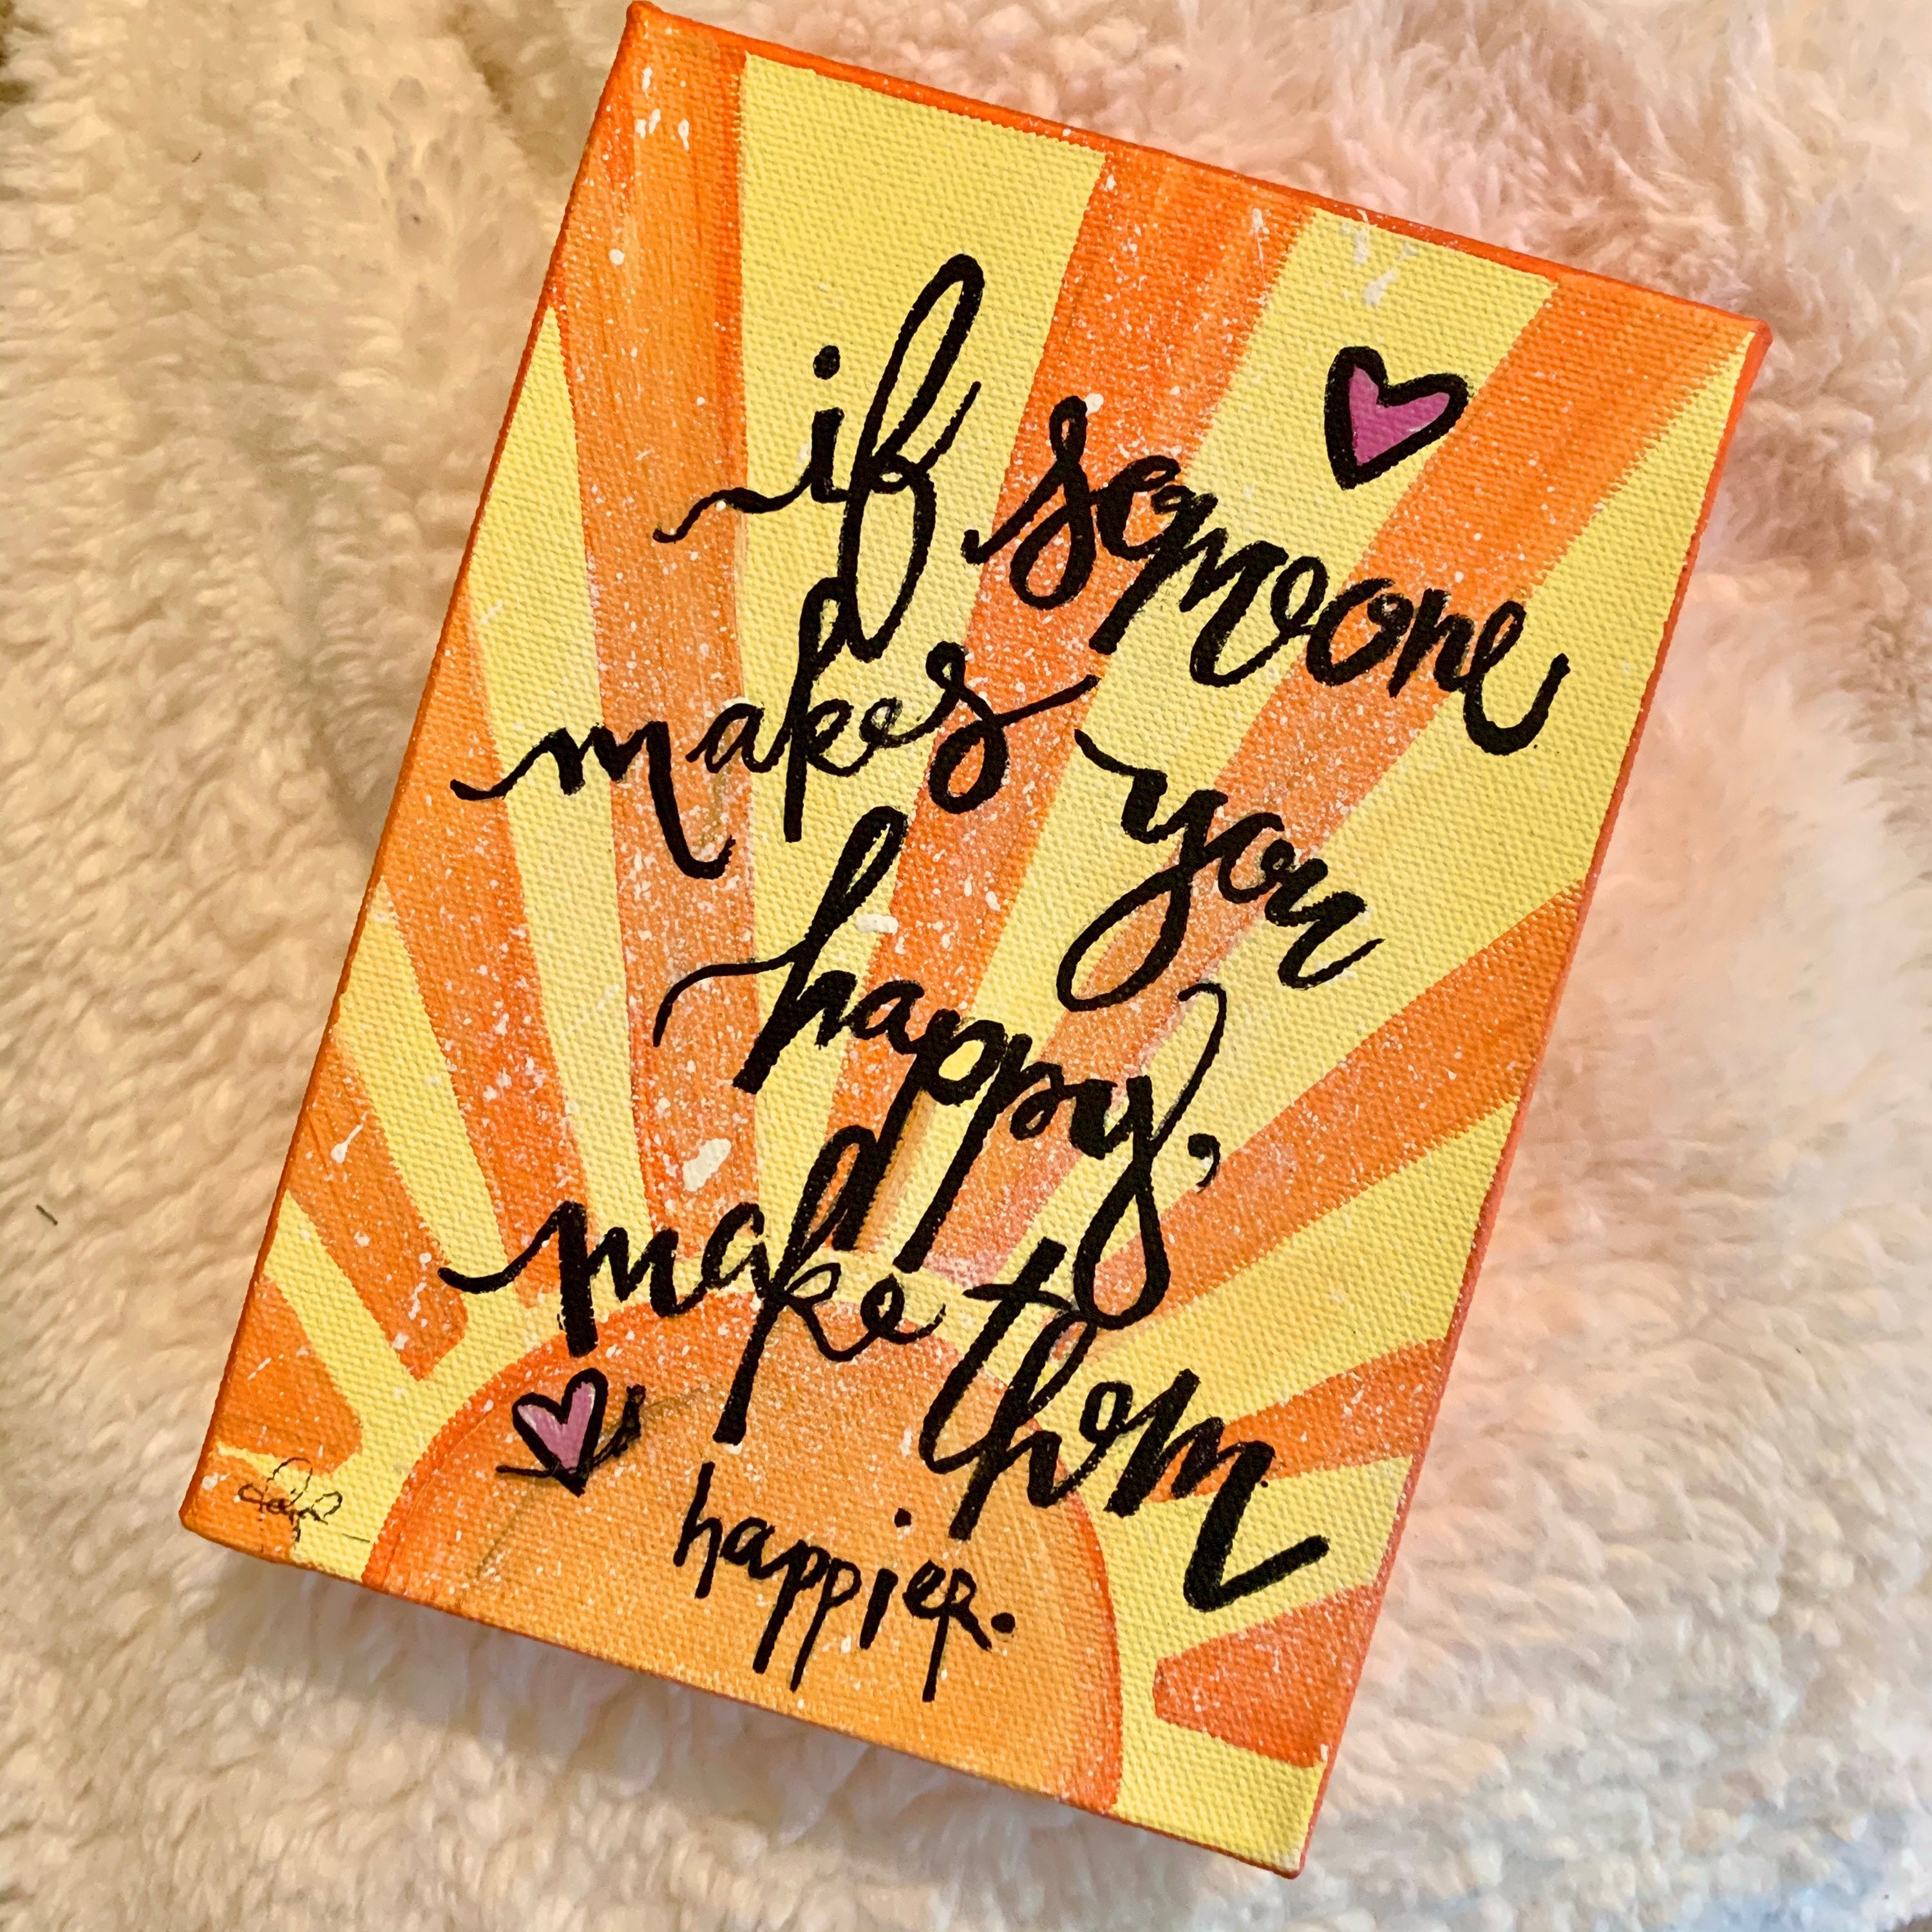 if someone
makes you
happy,
make them
happier.